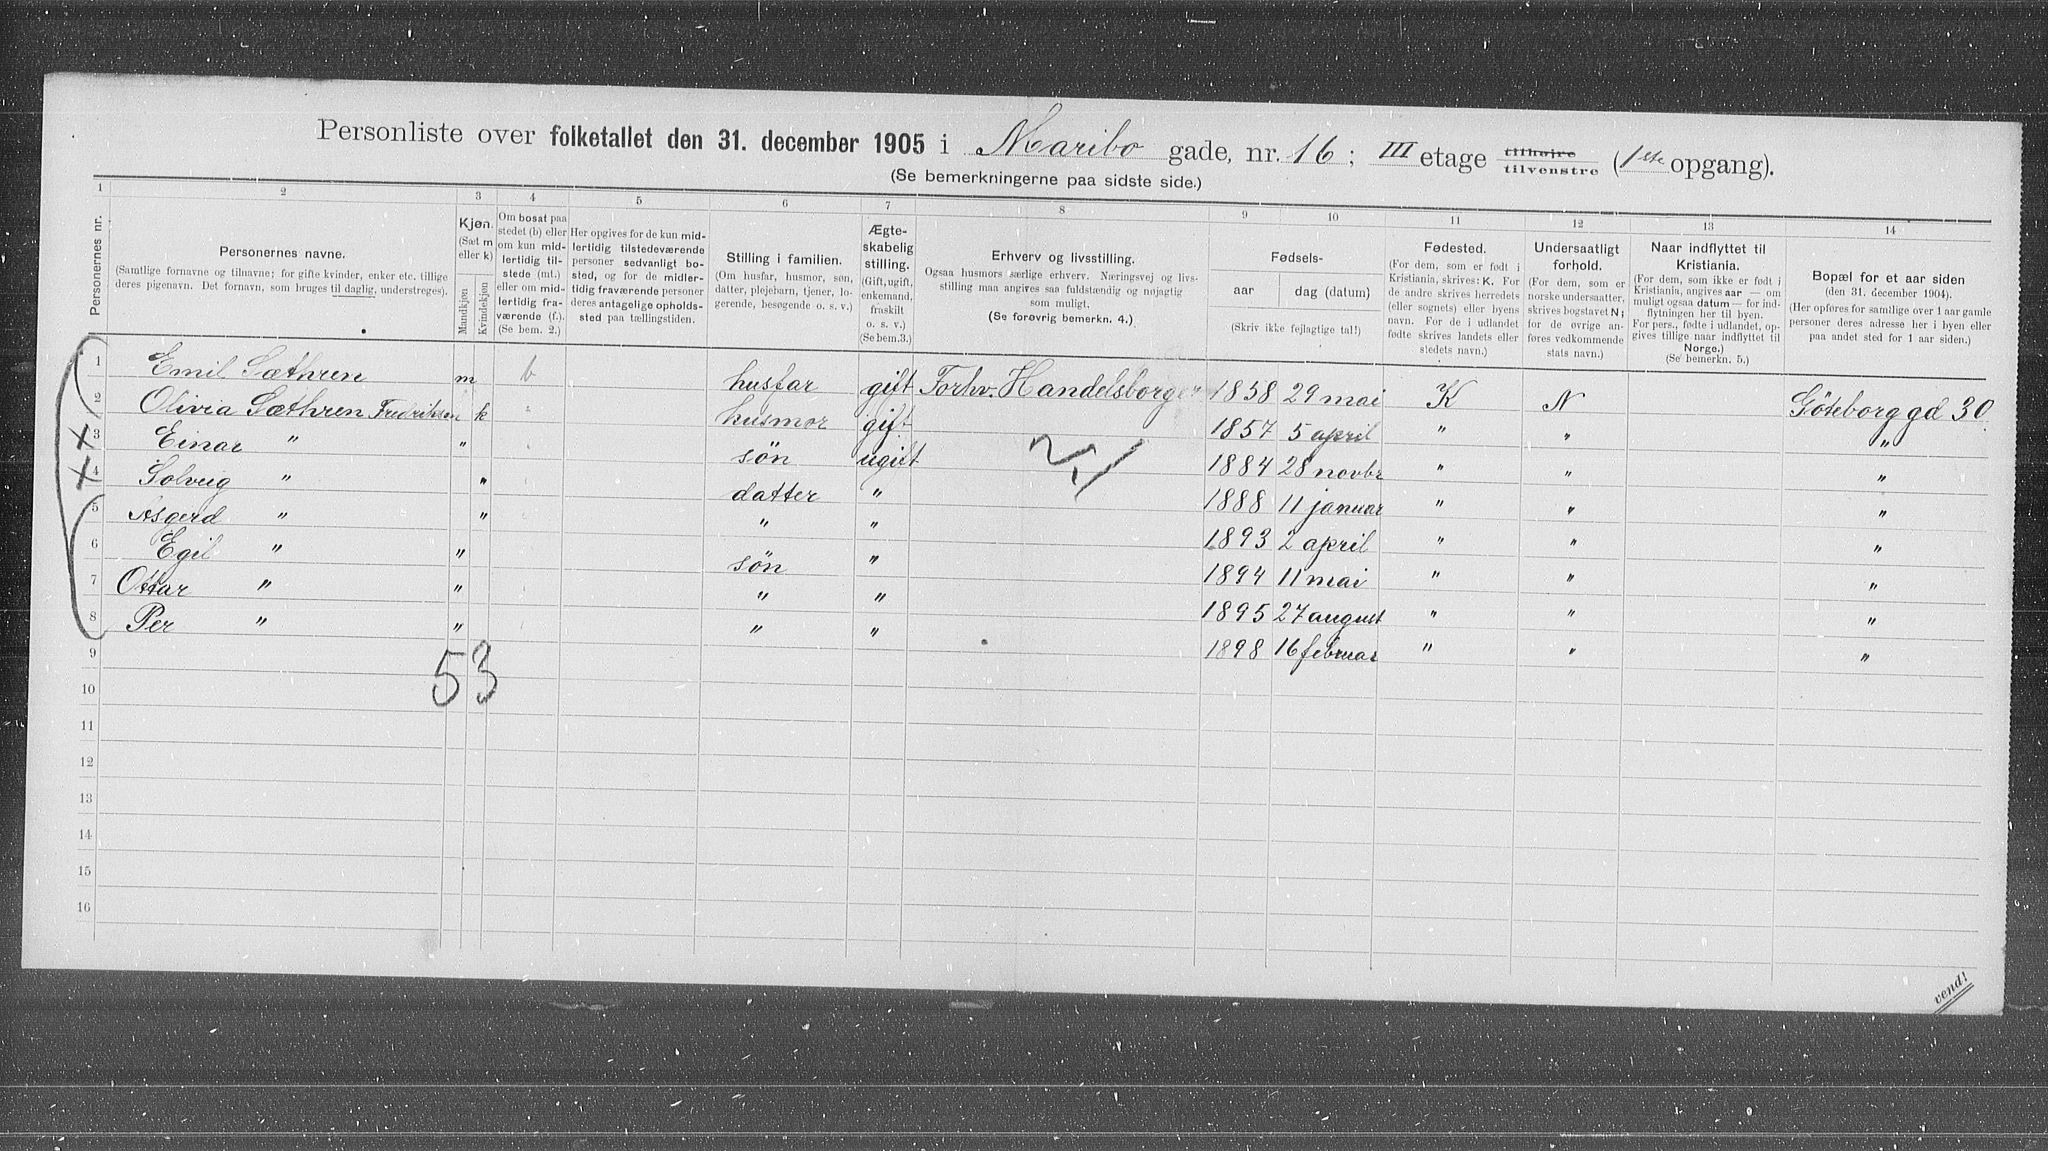 Personliste over folketallet den 31. december 1905 i Maribo gade, nr. 16; III etage tilhøire tilvenstre (1ste opgang).
(Se bemerkningerne paa sidste side.)
1 2 3 4 5 6 7 8 9 10 11 12 13 14
Personernes nr.
Personernes navne.
(Samtlige fornavne og tilnavne; for gifte kvinder, enker etc. tillige
deres pigenavn. Det fornavn, som bruges til daglig, understreges).
Kjøn.
(Sæt m
eller k)
Mandkjøn
Kvindekjøn
Om bosat paa
stedet (b) eller
om kun mid-
lertidig til-
stede (mt.)
eller om mid-
lertidig fra-
værende (f.).
(Se bem. 2.)
Her opgives for de kun mid-
lertidig tilstedeværende
personer sedvanlig bo-
sted, og for de midler-
tidig fraværende personer
deres antagelige opholds-
sted paa tællingstiden.
Stilling i familien.
(Om husfar, husmor, søn,
datter, plejebarn, tjener, lo-
gerende, besøgende o. s. v.)
Ægte-
skabelig
stilling.
(Gift, ugift,
enkemand,
fraskilt
o. s. v.)
(Se bem.3.)
Erhverv og livsstilling.
Ogsaa husmors særlige erhverv. Næringsvej og livs-
stilling maa angives saa fuldstændig og nøjagtig
som muligt.
(Se forøvrig bemerkn. 4.)
Fødsels-
aar dag (datum)
(Skriv ikke fejlagtige tal!)
Fødested.
(For dem, som er født i
Kristiania, skrives: K. For
de andre skrives herredets
(eller sognets) eller byens
navn. For de i udlandet
fødte skrives landets eller
stedets navn.)
Undersaatligt
forhold.
(For dem, som er
norske undersaatter,
skrives bogstavet N;
for de øvrige an-
føres vedkommende
stats navn.)
Naar indflyttet til
Kristiania.
(For dem, som ikke er født i
Kristiania, angives aar — om
muligt ogsaa datum — for ind-
flytningen her til byen.
For pers., fødte i udlandet, op-
gives tillige naar indflyttet til
Norge.)
(Se bemerkn. 5.)
Bopæl for et aar siden
(den 31. december 1904.)
(Her opføres for samtlige over 1 aar gamle
personer deres adresse her i byen eller
paa andet sted for 1 aar siden.)
1 Emil Sæthren m b husfar gift Forhv. Handelsborger 1858 29 mai K N Göteborg gd 30.
2 Olivia Sæthren Fredriksen k " husmor gift 1857 5 april " " "
3 Einar " " søn ugift 1884 28 novbr " " "
4 Solveig " " datter " 1888 11 januar " " "
5 Asgerd " " " " 1893 2 april " " "
6 Egil " " søn " 1894 11 mai " " "
7 Ottar " " " " 1895 27 august " " "
8 Per " " " " 1898 16 februar " " "
9
53
10
11
12
13
14
15
16
vend!